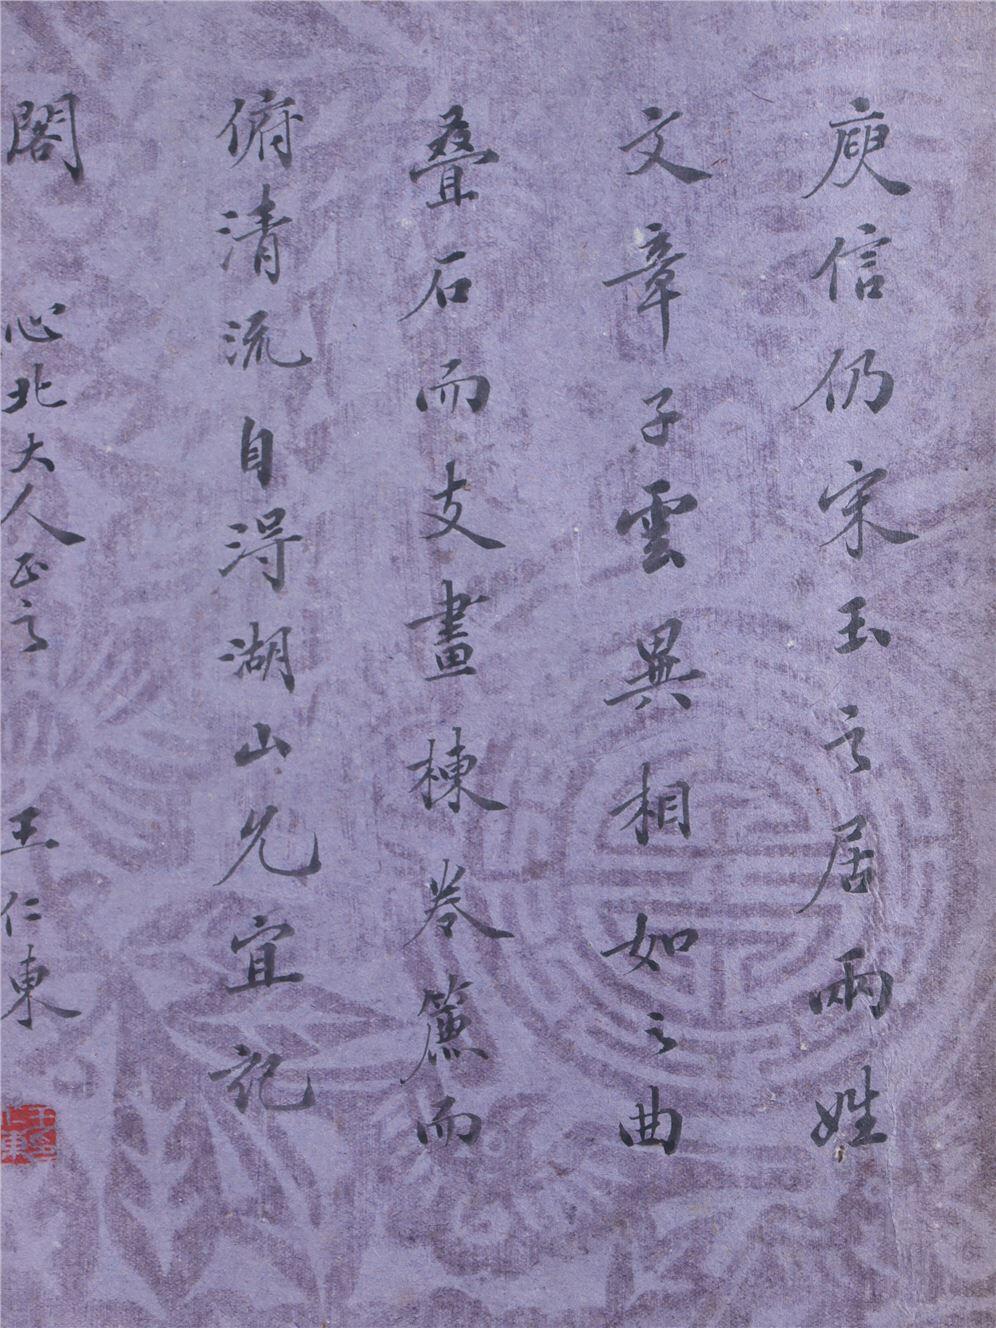 庾信仍宋玉之居兩姓
文章子雲異相如之曲
疊石而支畫棟卷簾而
俯清流自得湖山允宜記
閣 心北大人正之 王仁東
王仁東